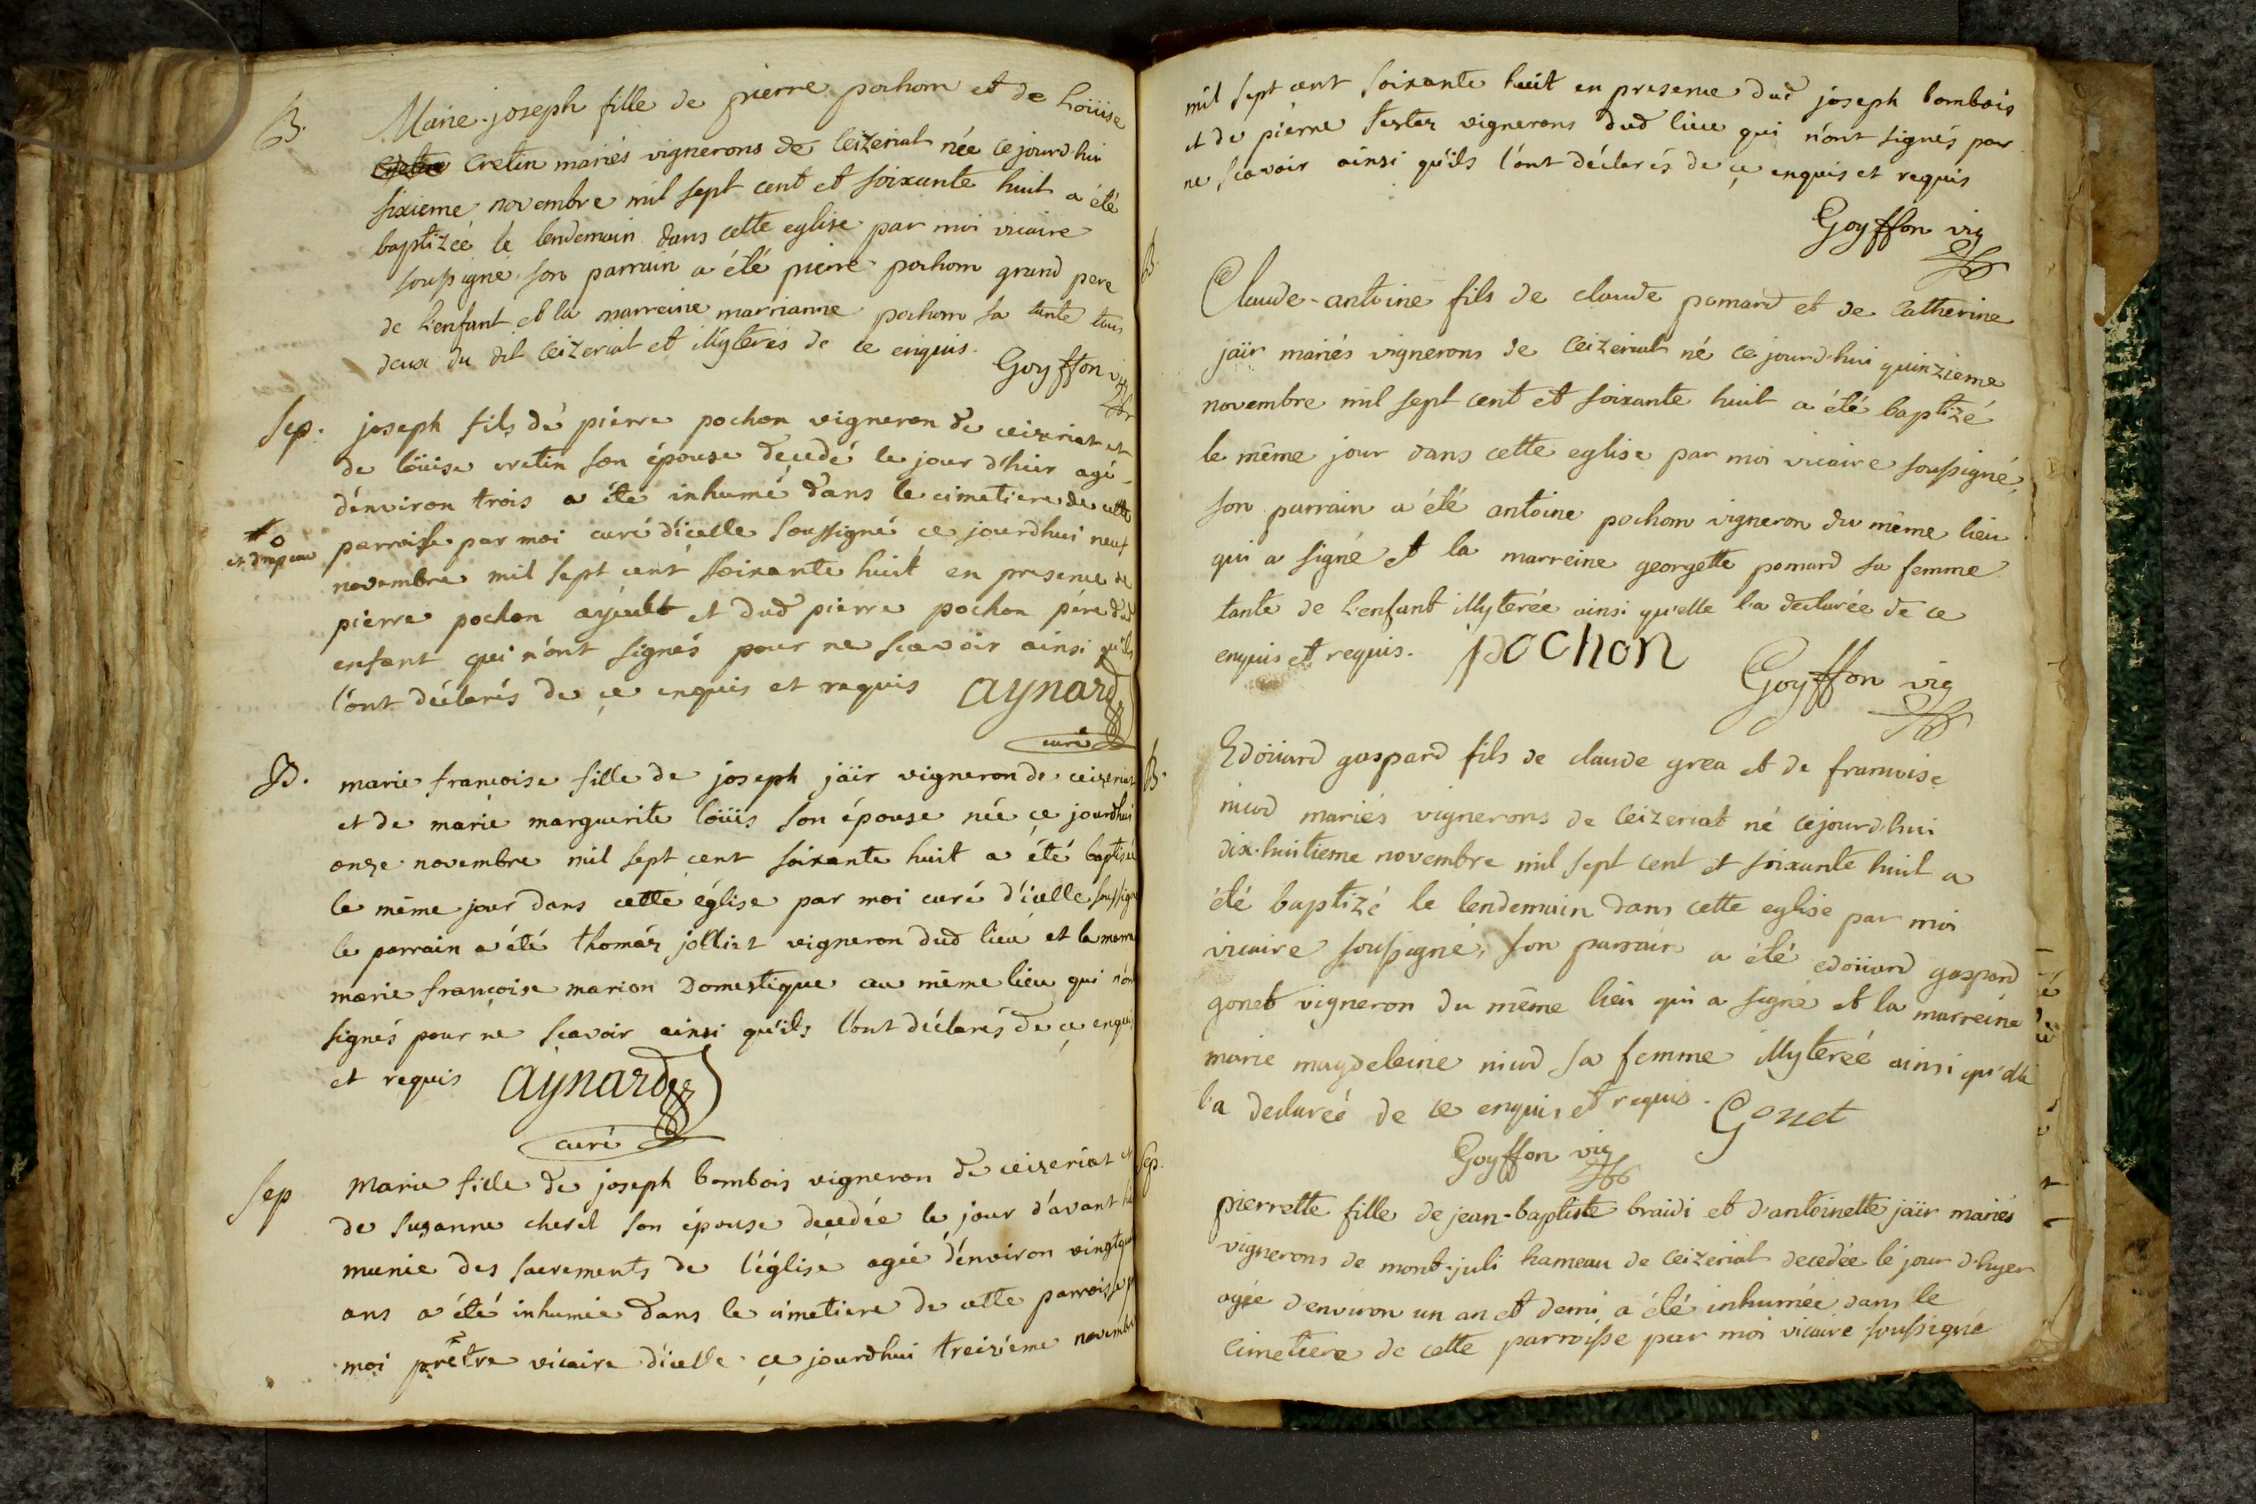 B.
Marie-joseph fille de pierre pochon et de Loüise
cretin mariés vignerons de Ceizeriat née ce jourd'hui
sixieme novembre mil sept cent et soixante huit a été
baptizée le lendemain dans cette eglise par moi vicaire
soussigné, son parrain a été pierre pochon grand pere
de L'enfant et la marreine marrianne pochon sa tante tous
deux du dit Ceizeriat et illyterés de ce enquis.
Goyffon vic
Sep.
joseph fils de pierre pochon vigneron de ceizeriat et
de loüise cretin son épouse décedé le jour d'hier agé
d'environ trois a été inhumé dans le cimetiere de cette
parroisse par moi curé d'icelle soussigné ce jourdhui neuf
novembre mil sept cent soixante huit en presence de
pierre pochon ayeult et dud pierre pochon pére dud
enfant qui n'ont signés pour ne scavoir ainsi qu'ils
l'ont déclarés de ce enquis et requis
aynard
curé
B.
marie francoise fille de joseph jäir vigneron de ceizeriat
et de marie marguerite loüis son épouse née ce jourdhui
onze novembre mil sept cent soixante huit a été baptisée
le même jour dans cette église par moi curé d'icelle soussigné
le parrain a été thomás jolliet vigneron dud lieu et la marr
marie françoise marion Domestique au même lieu qui n'ont
signés pour ne scavoir ainsi qu'ils l'ont déclarés de ce enquis
et requis
aynard
curé
Sep
Marie fille de joseph bombois vigneron de ceizeriat et
de suzanne cherel son épouse décedée le jour d'avant hier
munie des sacrements de l'église agée d'environ vingtqua
ans a été inhumée dans le cimetiere de cette parroisse par
moi prêtre vicaire d'icelle ce jourdhui treiziéme novembre
mil sept cent soixante huit en presence dud joseph bombois
et de pierre vignerons dud lieu qui n'ont signés par
ne scavoir ainsi qu'ils l'ont déclarés de ce enquis et requis
Goyffon vic
B.
Claude-antoine fils de claude pomard et de Catherine
jaïr mariés vignerons de Ceizeriat né ce jourd'hui quinzieme
novembre mil sept cent et soixante huit a été baptizé
le même jour dans cette eglise par moi vicaire soussigné,
son parrain a été antoine pochon vigneron du même lieu
qui a signé et la marreine georgette pomard sa femme
tante de L'enfant illyterée ainsi qu'elle l'a declarée de ce
enquis et requis.
pochon
Goyffon vic
B.
Edoüard gaspard fils de claude grea et de francoise
nicod mariés vignerons de Ceizeriat né cejourd'hui
dix-huitieme novembre mil sept cent et soixante huit a
été baptizé le lendemain dans cette eglise par moi
vicaire soussigné, son parrain a été edoüard gaspard
gonet vigneron du même lieu qui a signé et la marreine
marie magdeleine nicod sa femme illyterée ainsi qu'elle
l'a declareé de ce enquis et requis.
Gonet
Goyffon vic
Sep.
pierrette fille de jean-baptiste braidi et d'antoinette jaïr mariés
vignerons de mont-juli hameau de Ceizeriat decedée le jour d'hyer
agée d'environ un an et demi, a été inhumée dans le
cimetiere de cette parroisse par moi vicaire soussigné